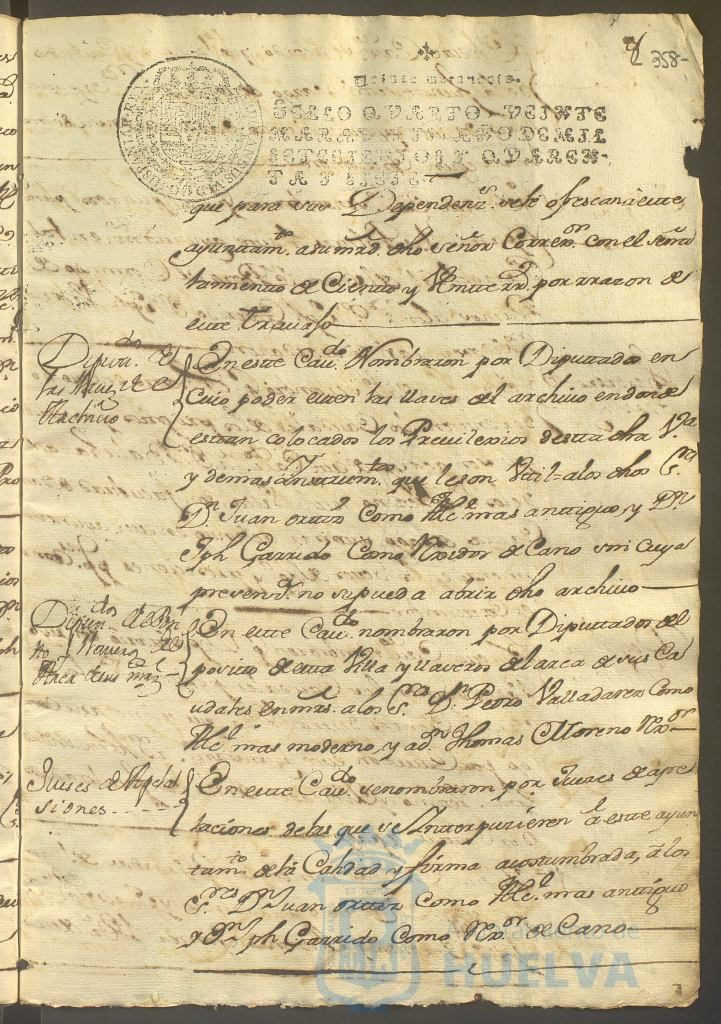 8 358-
Veinte maravedis.
SELLO QVARTO, VEINTE
MARAVEDIS, AÑO DE MIL
SETECIENTOS Y QVAREN-
TA Y SIETE
que para sus Dependenz.s se le ofrescan a este
ayuntam.to a su mrd. dho señor Correx.or con el señala
tamiento de Ciento y
por rrazon de
este travajo
Diputt.dos de
las llaves de el
Archivo
En este Cav.do Nombraron por Diputtados en
Cuio poder esten las llaves del archivo en donde
estan colocados los Previlexios desta dha V.a
y demas Ynstrum.tos que le son Vtil- a los dhos S.res
D.n Juan orttiz Como Alc.e mas anttiguo, y D.n
Jph Garrido Como Rexidor de Cano sin cuya
presenz.a no se pueda abrir dho archivo
Diputt.dos del Posi
to y llaveros de el
Arca de sus mrs
En este Cav.do nombraron por Diputtados del
posito de esta Villa y llaveros del arca de sus Ca
udales en mrs. a los S.res D.n Pedro Valladares Como
Alc.e mas moderno, y a d.n Thomas Moreno Rex.or
Jueses de Apela
siones
En este Cav.do se nombraron por Jueses de ape
laciones de las que se Ynterpusieren a este ayun
tam.to de la Calidad y forma acostumbrada, a los
S.res D.n Juan orttiz como Alc.e mas anttiguo
y D.n Jph Garrido Como Rex.or de Cano
Ayuntamiento de
HUELVA